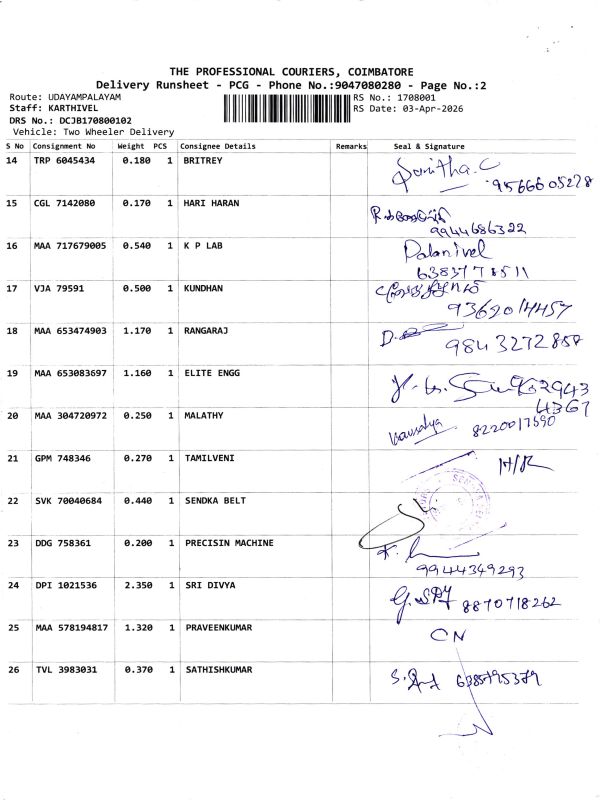 THE PROFESSIONAL COURIERS, COIMBATORE
Delivery Runsheet - PCG - Phone No.:9047080280 - Page No.:2
Route: UDAYAMPALAYAM
RS No.: 1708001
Staff: KARTHIVEL
RS Date: 03-Apr-2026
DRS No.: DCJB170800102
Vehicle: Two Wheeler Delivery
S No Consignment No Weight PCS Consignee Details Remarks Seal & Signature
14 TRP 6045434 0.180 1 BRITREY
9566605278
15 CGL 7142080 0.170 1 HARI HARAN
9944686322
16 MAA 717679005 0.540 1 K P LAB Palanivel
17 VJA 79591 0.500 1 KUNDHAN
18 MAA 653474903 1.170 1 RANGARAJ
9843272858
19 MAA 653083697 1.160 1 ELITE ENGG
20 MAA 304720972 0.250 1 MALATHY
8220017590
21 GPM 748346 0.270 1 TAMILVENI
22 SVK 70040684 0.440 1 SENDKA BELT
23 DDG 758361 0.200 1 PRECISIN MACHINE
9944349293
24 DPI 1021536 2.350 1 SRI DIVYA
8870718262
25 MAA 578194817 1.320 1 PRAVEENKUMAR CN
26 TVL 3983031 0.370 1 SATHISHKUMAR
6385795379